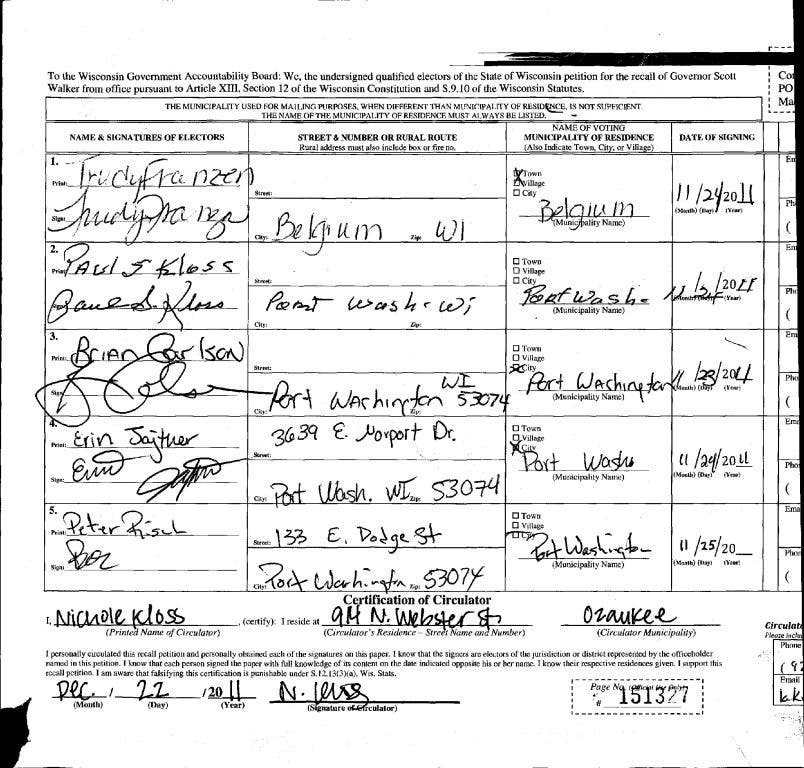 To the Wisconsin Government Accountability Board: We, the undersigned qualified electors of the State of Wisconsin petition for the recall of Governor Scott
Walker from office pursuant to Article XIII, Section 12 of the Wisconsin Constitution and S.9.10 of the Wisconsin Statutes.
THE MUNICIPALITY USED FOR MAILING PURPOSES, WHEN DIFFERENT THAN MUNICIPALITY OF RESIDENCE, IS NOT SUFFICIENT.
THE NAME OF THE MUNICIPALITY OF RESIDENCE MUST ALWAYS BE LISTED.
NAME & SIGNATURES OF ELECTORS
STREET & NUMBER OR RURAL ROUTE
Rural address must also include box or fire no.
NAME OF VOTING
MUNICIPALITY OF RESIDENCE
(Also Indicate Town, City, or Village)
DATE OF SIGNING
1.
Print: Trudy Franzen
Sign: Trudy Franzen
Street:
City: Belgium Zip: WI
Town
Village
City
Belgium
(Municipality Name)
11/24/2011
(Month) (Day) (Year)
2.
Print: Paul J Kloss
Sign: Paul J. Kloss
Street:
Port Wash. Wi
City: Zip:
Town
Village
City
Port Wash.
(Municipality Name)
2011
(Month) (Day) (Year)
3.
Print: Brian Carlson
Sign:
Street:
WI
City: Port Washington Zip: 53074
Town
Village
City
Port Washington
(Municipality Name)
11/23/2011
(Month) (Day) (Year)
4.
Print: Erin
Sign: Erin
3639 E. Norport Dr.
Street:
City: Port Wash. WI Zip: 53074
Town
Village
City
Port Wash
(Municipality Name)
11/24/2011
(Month) (Day) (Year)
5.
Print: Peter Risch
Sign:
Street: 133 E. Dodge St
City: Port Washington Zip: 53074
Town
Village
City
Port Washington
(Municipality Name)
11/25/20
(Month) (Day) (Year)
Certification of Circulator
I, Nichole Kloss, (certify): I reside at N. Webster St Ozaukee
(Printed Name of Circulator) (Circulator's Residence – Street Name and Number) (Circulator Municipality)
I personally circulated this recall petition and personally obtained each of the signatures on this paper. I know that the signers are electors of the jurisdiction or district represented by the officeholder
named in this petition. I know that each person signed the paper with full knowledge of its content on the date indicated opposite his or her name. I know their respective residences given. I support this
recall petition. I am aware that falsifying this certification is punishable under S.12.13(3)(a), Wis. Stats.
Dec. / 22 / 2011 N. Kloss
(Month) (Day) (Year) (Signature of Circulator)
Page No. (Official Use Only)
# 151327
Phone
Email